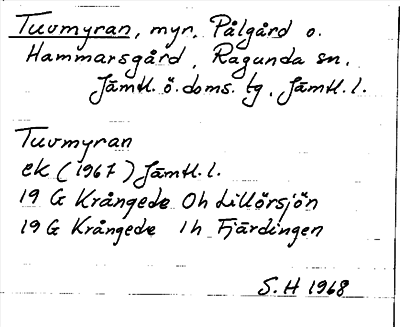 Tuvmyran, myr, Pålgård o.
Hammarsgård, Ragunda sn,
Jämtl. ö. doms. tg, Jämtl. l.
Tuvmyran
ek (1967) Jämtl. l.
19 G Krångede 0h Lillörsjön
19 G Krångede 1h Fjärdingen
S.H 1968